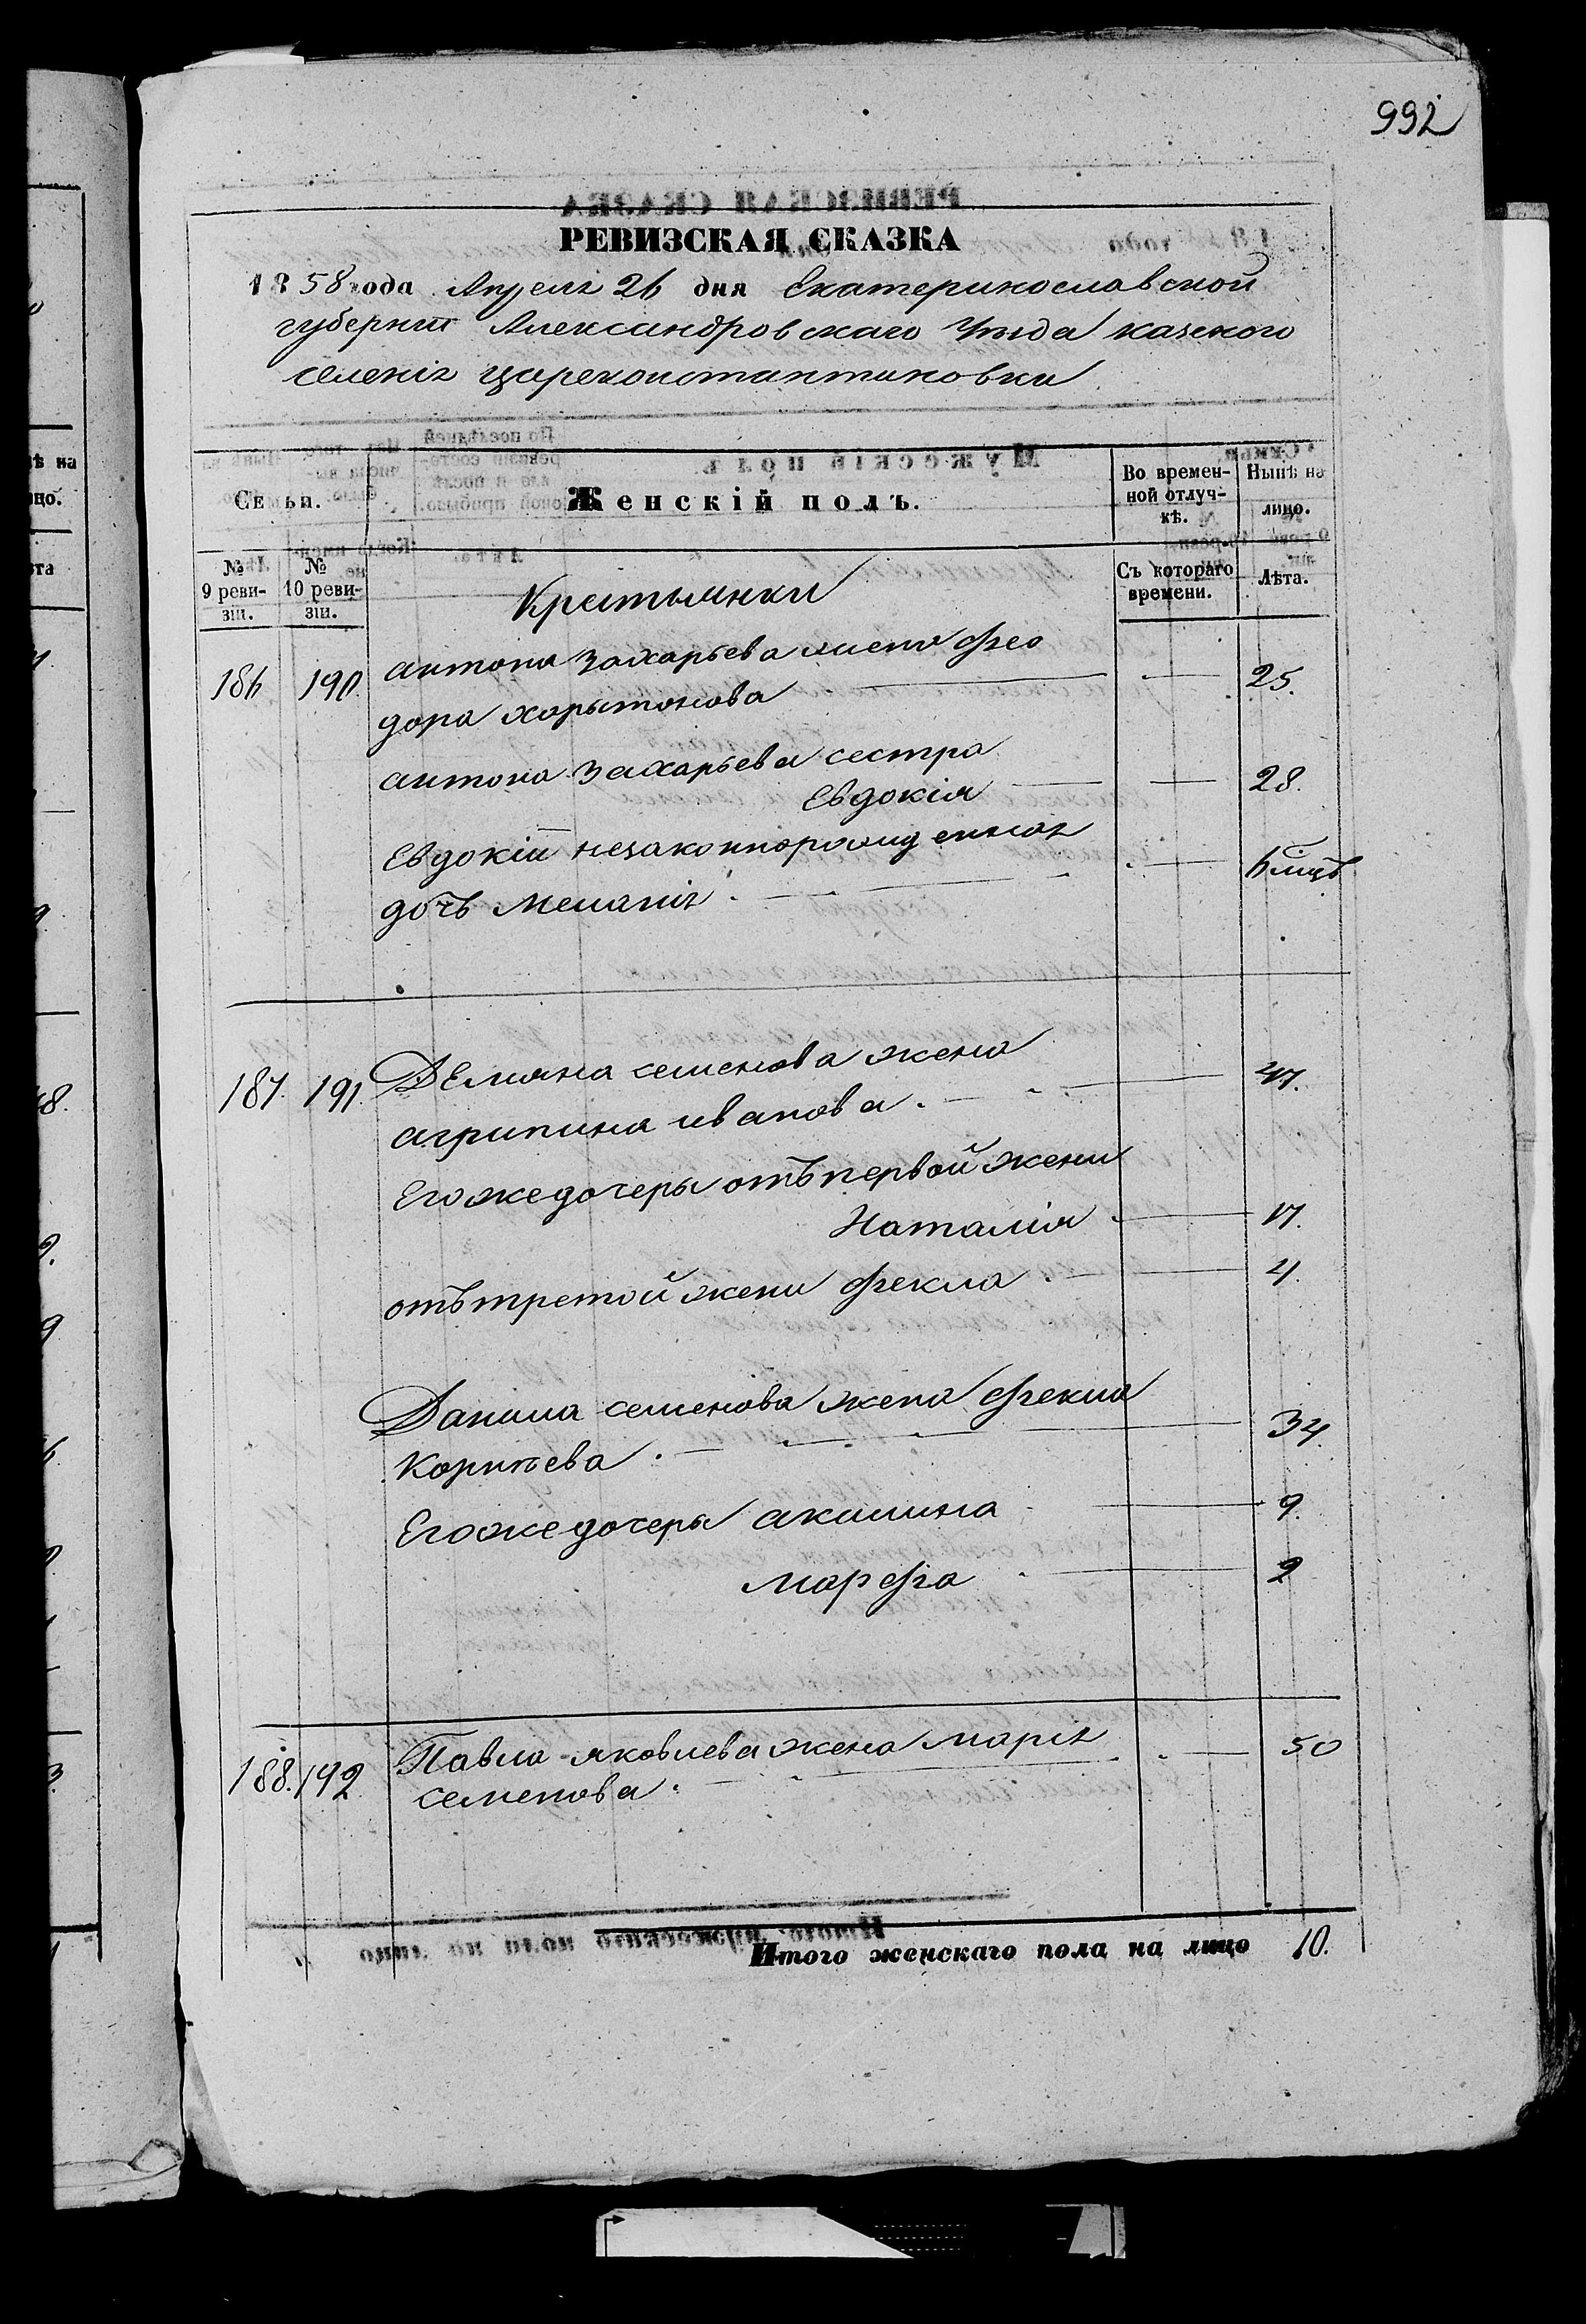 992
РЕВИЗСКАЯ СКАЗКА
1858 года Апреля 26 дня Екатеринославской
губерніи Александровскаго Уѣзда казеного
селенія Цареконстантиновки
Семьи.
Женскій полъ.
Во времен-
ной отлуч-
кѣ.
Нынѣ на
лицо.
№
9 реви-
зіи.
№
10 реви-
зіи.
Съ котораго
времени.
Лѣта.
Крестьянки
186 190. антона захарьева жена Фео
дора харытонова 25.
антона захарьева сестра
Евдокія 28.
Евдокіи незаконнорожденная
дочь меланія 6 мцъ
187. 191. Демяна семенова жена
агрипина иванова 47.
Его же дочеры отъ первой жени
Наталія 17.
отъ третой жени Фекла 4.
Данила семенова жена Фекла
Корнѣева 34.
Его же дочеры акилина 9.
Марфа 2
188. 192. Павла яковлева жена марія 50
семенова
Итого женскаго пола на лицо 10.